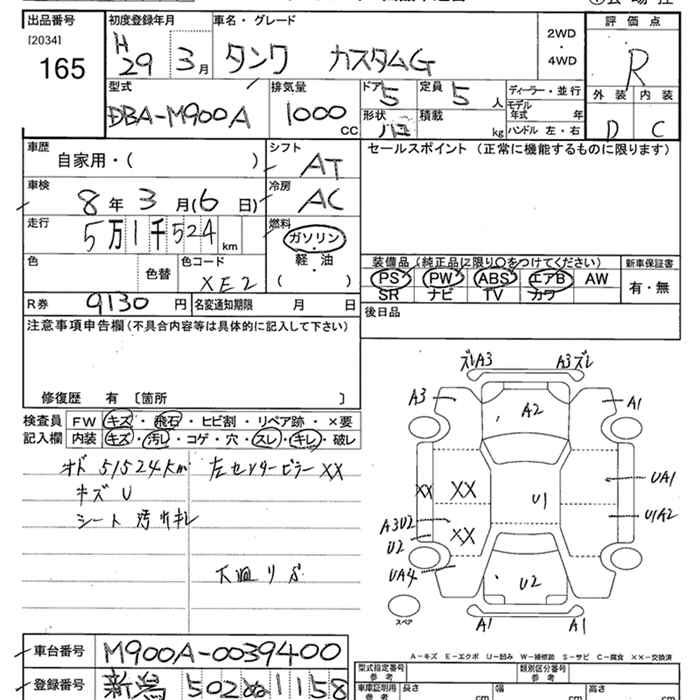 出品番号 初度登録年月 車名・グレード 評価点
[2034] H 29 3月 タンク カスタムG 2WD・4WD R
165
型式 排気量 ドア 5 定員 5人 ディーラー・並行 外装 内装
DBA-M900A 1000CC 形状 積載 kg モデル年式 年 D C
ハンドル 左・右
車歴 シフト セールスポイント (正常に機能するものに限ります)
自家用・( ) AT
車検 冷房
8年3月(6日) AC
走行 燃料
5万1千524km ガソリン・軽油
( )
色 色替 色コード XE2
装備品(純正品に限り○をつけてください) 新車保証書
PS PW ABS エアB AW 有・無
SR ナビ TV カワ
R券 9130円 名変通知期限 月 日 後日品
注意事項申告欄(不具合内容等は具体的に記入して下さい)
修復歴 有 〔箇所 〕
検査員記入欄 FW キズ・飛石・ヒビ割・リペア跡・×要
内装 キズ・汚レ・コゲ・穴・スレ・キレ・破レ
オド 51524km 左センターピラーXX
キズU
シート 汚れキレ
ズレA3 A3ズレ
A3 A2 A1
XX XX U1 UA1
A3U2 XX U1A2
U2
UA4 U2
A1 A1
スペア
A-キズ E-エクボ U-凹み W-補修跡 S-サビ C-腐食 ××-交換済
車台番号 M900A-0039400
登録番号 新潟 502ぬ1158
型式指定番号 参考 類別区分番号 参考
車庫証明用 参考 長さ cm 幅 cm 高さ cm